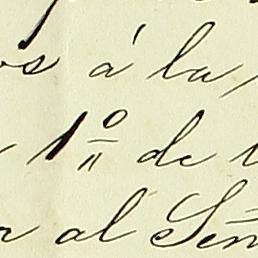 á la
1º de
al Señ